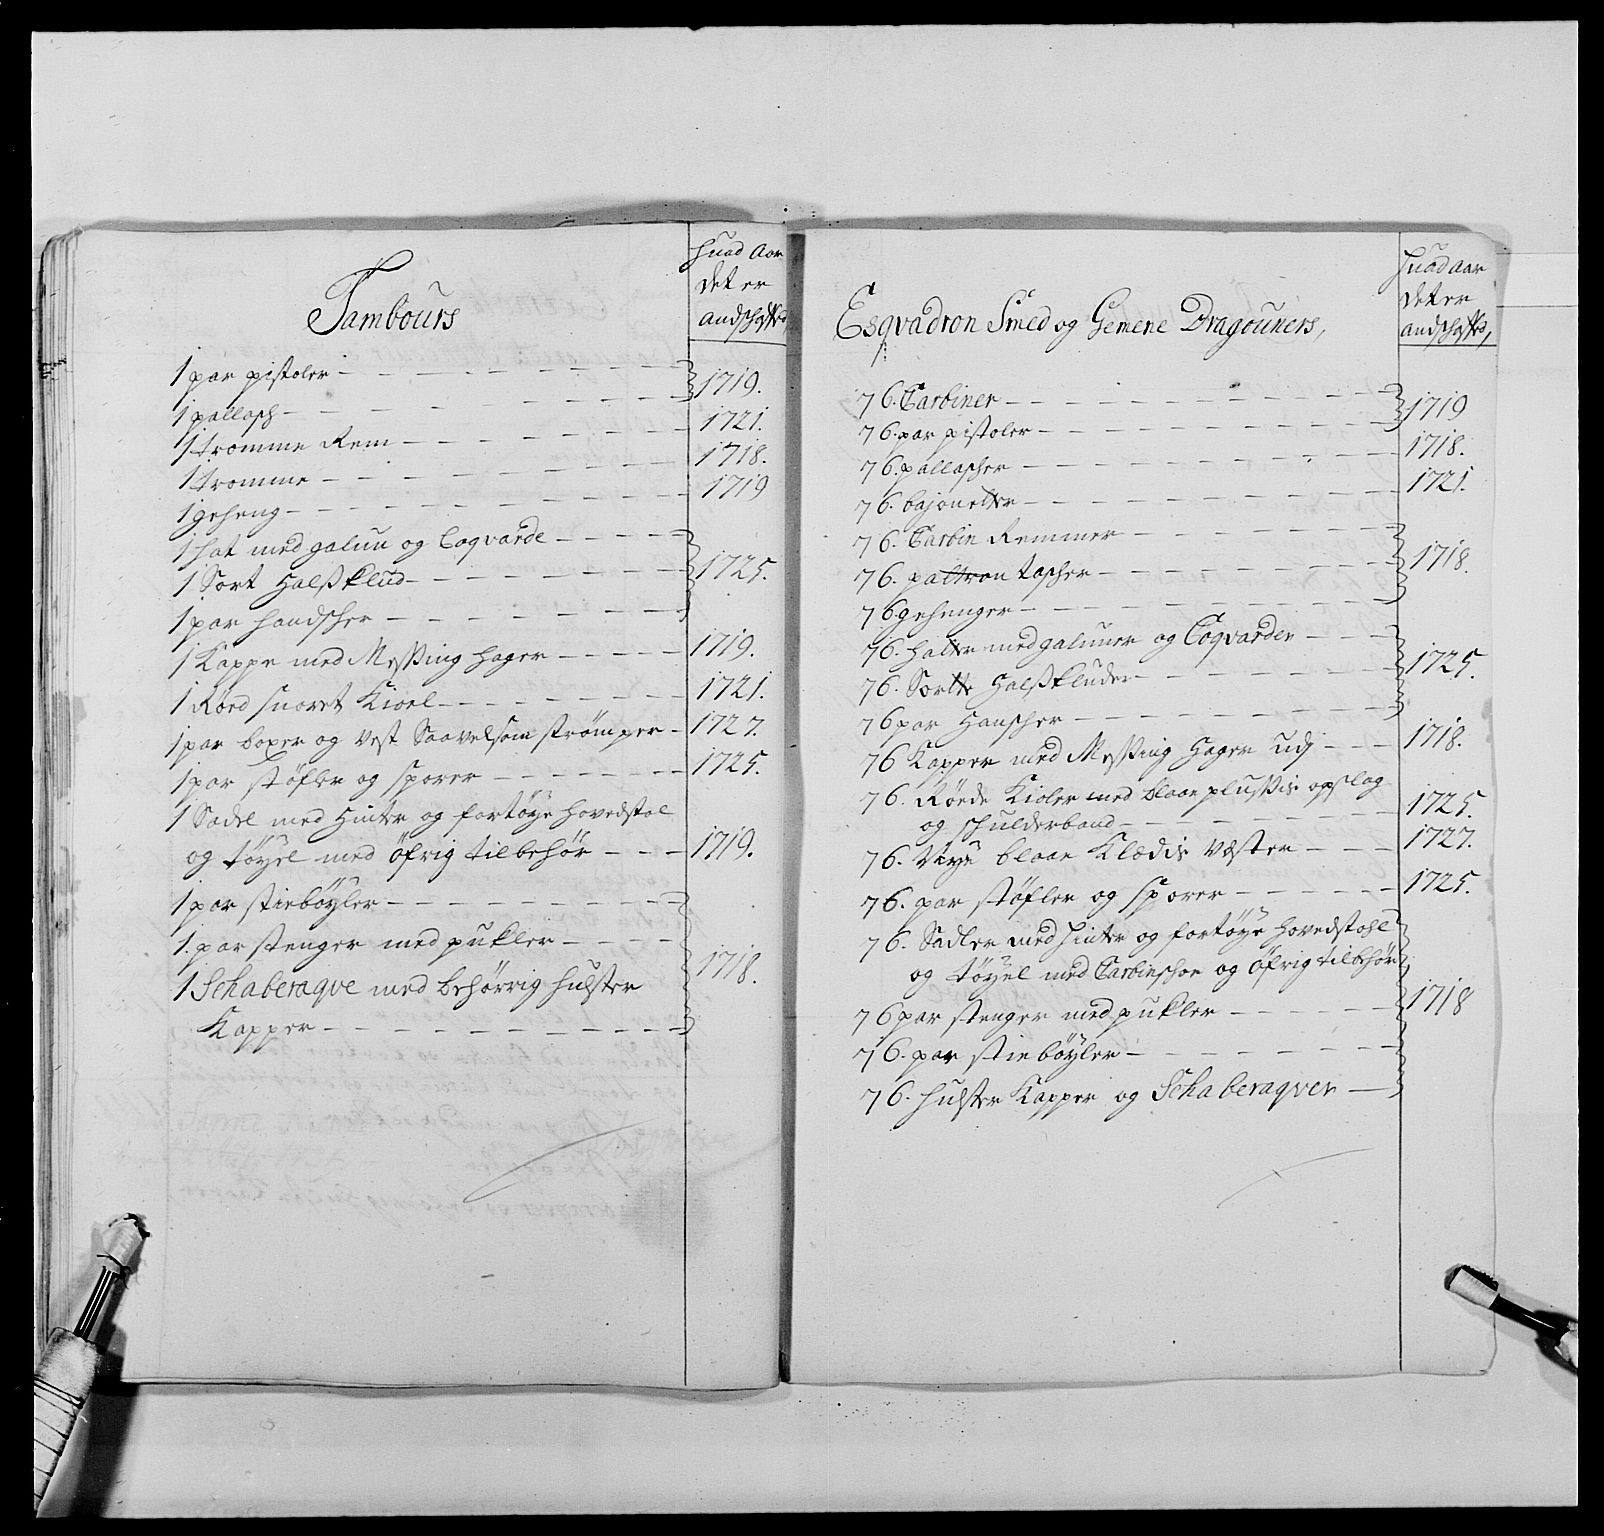 Tambours
huad Aar
det er
andschaffed
1 par pistoler
1719.
1 pallasch
1 tromme Rem
1721.
1 tromme
1718.
1 geheng
1719
1 hat med galun og Coqvarde
1 Sort Halsklud
1725.
1 par handscher
1 Kappe med Messing hager
1719.
1 Röed Kioel
1721.
1 par boxer og Vest Saavelsom strømper
1727.
1 par støfler og sporer
1725.
1 Sadel med Hinter og fortøye hovedstol
og tøyel med öfrig tilbehör
1719.
1 par stiebøyler
1 par stenger med pukler
1718.
1 Schaberaqve med behørrig hulster
Kapper
Esqvadron Smed og Gemene Dragouners,
huad aar
det er
andschaffed,
76. Carbiner
1719
76. par pistoler
76. pallascher
1718.
76. bajonetter
1721.
76. Carbin Remmer
76. patrontascher
1718.
76 gehenger
76. hatte med galuner og Coqvarder
76. Sortte Halskluder
1725.
76 par Hanscher
76 Kapper med Messing Hager udj
1718.
76. Röede Kioler med blaae plussis opslag
og schulderband
1725.
76. Nye blaae Klædis Væster
1727.
76. par støfler og sporer
1725.
76. Sadler med hinter og fortøye hovedstohl
og tøyel med Carbinschoe og öfrig tilbehör
76 par stenger med pukler
1718
76. par stiebøyler
76. hulster Kapper og Schaberaqver